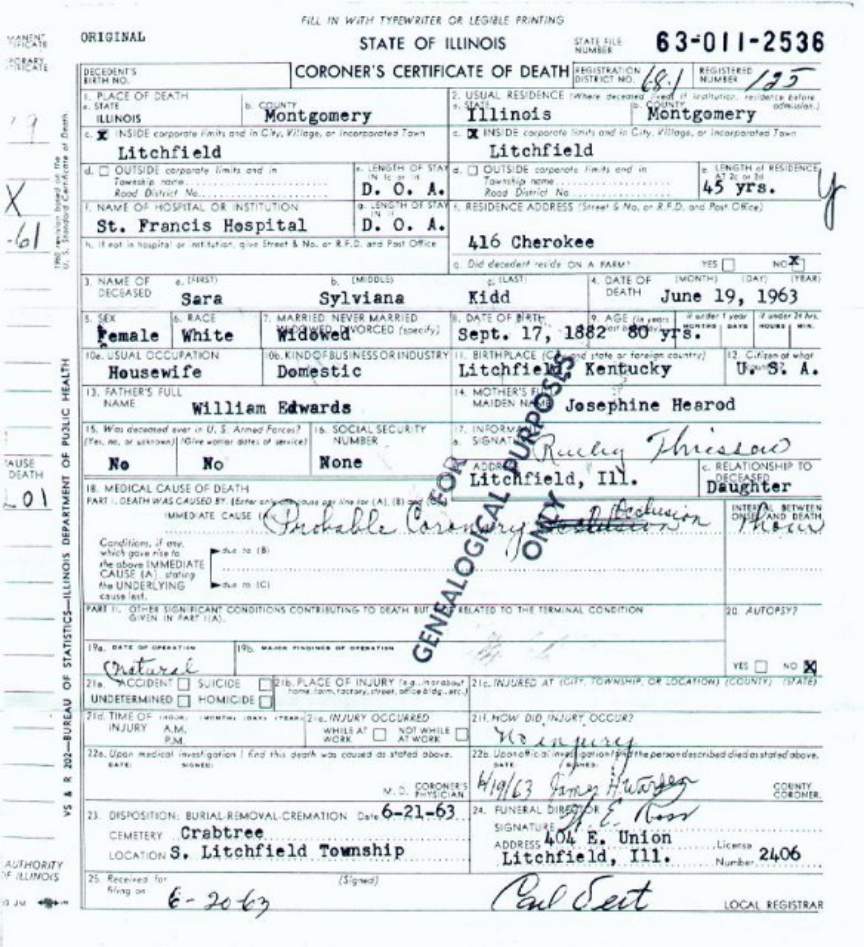 FILL IN WITH TYPEWRITER OR LEGIBLE PRINTING
ORIGINAL
STATE OF ILLINOIS
STATE FILE NUMBER 63-011-2536
DECEDENT'S BIRTH NO.
CORONER'S CERTIFICATE OF DEATH
REGISTRATION DISTRICT NO. 68.1
REGISTERED NUMBER 125
1. PLACE OF DEATH
a. STATE ILLINOIS
b. COUNTY Montgomery
2. USUAL RESIDENCE (Where deceased lived, if institution, residence before admission.)
a. STATE Illinois
b. COUNTY Montgomery
c. X INSIDE corporate limits and in City, Village, or Incorporated Town
Litchfield
c. X INSIDE corporate limits and in City, Village, or Incorporated Town
Litchfield
d. OUTSIDE corporate limits and in
Township name
Road District No.
e. LENGTH OF STAY IN 1c or 1d
D. O. A.
d. OUTSIDE corporate limits and in
Township name
Road District No.
e. LENGTH of RESIDENCE AT 2c or 2d
45 yrs.
f. NAME OF HOSPITAL OR INSTITUTION
St. Francis Hospital
g. LENGTH OF STAY IN 1f
D. O. A.
f. RESIDENCE ADDRESS (Street & No. or R.F.D. and Post Office)
416 Cherokee
h. If not in hospital or institution, give Street & No. or R.F.D. and Post Office
g. Did decedent reside ON A FARM? YES NO X
3. NAME OF DECEASED
a. (FIRST) Sara
b. (MIDDLE) Sylviana
c. (LAST) Kidd
4. DATE OF DEATH (MONTH) (DAY) (YEAR)
June 19, 1963
5. SEX Female
6. RACE White
7. MARRIED NEVER MARRIED WIDOWED, DIVORCED (specify)
Widowed
8. DATE OF BIRTH
Sept. 17, 1882
9. AGE (in years last birthday)
80 yrs.
If under 1 year MONTHS DAYS
If under 24 hrs. HOURS MIN.
10a. USUAL OCCUPATION
Housewife
10b. KIND OF BUSINESS OR INDUSTRY
Domestic
11. BIRTHPLACE (City and state or foreign country)
Litchfield, Kentucky
12. Citizen of what country?
U. S. A.
13. FATHER'S FULL NAME
William Edwards
14. MOTHER'S FULL MAIDEN NAME
Josephine Hearod
15. Was deceased ever in U. S. Armed Forces?
(Yes, no, or unknown) (Give war or dates of service)
No No
16. SOCIAL SECURITY NUMBER
None
17. INFORMANT
a. SIGNATURE
b. ADDRESS
Litchfield, Ill.
c. RELATIONSHIP TO DECEASED
Daughter
18. MEDICAL CAUSE OF DEATH
PART I. DEATH WAS CAUSED BY: (Enter only one cause per line for (A), (B) and (C))
IMMEDIATE CAUSE (A) Probable Coronary Occlusion
INTERVAL BETWEEN ONSET AND DEATH
Conditions, if any,
which gave rise to
the above IMMEDIATE
CAUSE (A), stating
the UNDERLYING
cause last.
due to (B)
due to (C)
PART II. OTHER SIGNIFICANT CONDITIONS CONTRIBUTING TO DEATH BUT NOT RELATED TO THE TERMINAL CONDITION
GIVEN IN PART I(A).
20. AUTOPSY?
YES NO X
19a. DATE OF OPERATION
19b. MAJOR FINDINGS OF OPERATION
Natural
21a. ACCIDENT SUICIDE
UNDETERMINED HOMICIDE
21b. PLACE OF INJURY (e.g., in or about home, farm, factory, street, office bldg., etc.)
21c. INJURED AT (CITY, TOWNSHIP, OR LOCATION) (COUNTY) (STATE)
21d. TIME OF INJURY (HOUR) (MONTH) (DAY) (YEAR)
A.M.
P.M.
21e. INJURY OCCURRED
WHILE AT WORK NOT WHILE AT WORK
21f. HOW DID INJURY OCCUR?
No injury
22a. Upon medical investigation I find this death was caused as stated above.
DATE: SIGNED:
M. D. CORONER'S PHYSICIAN
22b. Upon official investigation I find the person described died as stated above.
DATE SIGNED:
6/19/63 James H. Warden
COUNTY CORONER
23. DISPOSITION: BURIAL-REMOVAL-CREMATION Date 6-21-63
CEMETERY Crabtree
LOCATION S. Litchfield Township
24. FUNERAL DIRECTOR
SIGNATURE E. Ross
ADDRESS 404 E. Union
Litchfield, Ill.
License Number 2406
25. Received for filing on 6-20-63
(Signed)
LOCAL REGISTRAR
FOR
GENEALOGICAL PURPOSES
ONLY
VS & R 202—BUREAU OF STATISTICS—ILLINOIS DEPARTMENT OF PUBLIC HEALTH
1960 revision based on the
U. S. Standard Certificate of Death
X
-61
CAUSE
DEATH
01
AUTHORITY
OF ILLINOIS
y